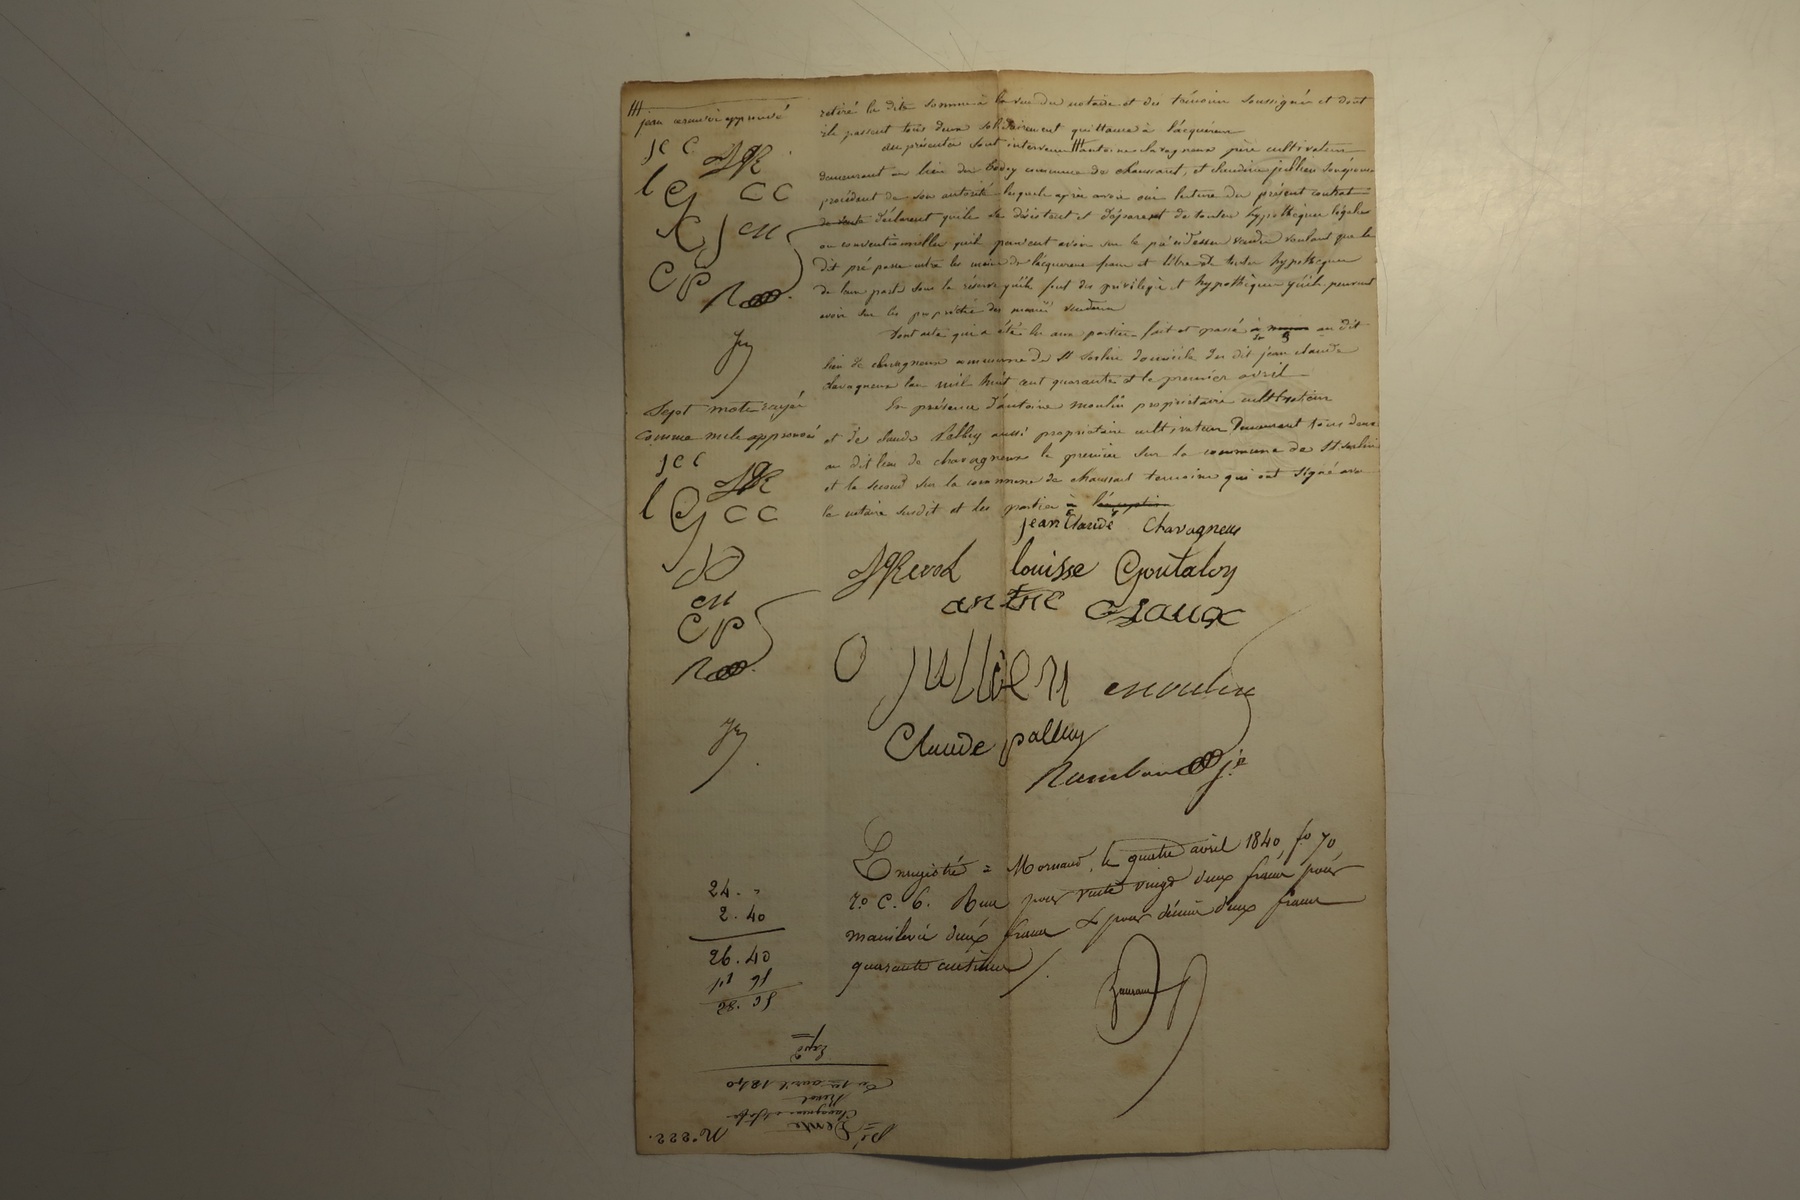 jean ce renvoi approuvé
JCC
JGR
lG CC
CJ em
CP
R
Jey
retiré la dite somme à la vue du notaire et des témoins soussignés et dont
ils passent tous deux solidairement quittance à l'acquéreur
aux présentes sont intervenus antoine chavagneux père cultivateur
demeurant au lieu du commune de chaussant, et claudine jullien son épouse
procédant de son autorité lesquels après avoir oui lecture du présent contrat
de vente déclarent qu'ils se désistent et départent de toutes hypothèques légales
ou conventionnelles qu'ils peuvent avoir sur le pré cidessus vendu voulant que le
dit pré passe entre les mains de l'acquereur franc et libre de toutes hypothèques
de leur part sous la réserve qu'ils font des privilèges et hypothèques qu'ils peuvent
avoir sur les propriétés des mariés vendeurs
Dont acte qui a été lu aux parties fait et passé au dit
lieu de chavagneux commune de St Sorlin domicile du dit jean claude
chavagneux l'an mil huit cent quarante et le premier avril
Sept mots rayés
comme nuls approuvés
JCC
JGR
lG CC
em
CP
R
Jey
En présence d'antoine moulin propriétaire cultivateur
et de claude Palluy aussi propriétaire cultivateur demeurant tous deux
au dit lieu de chavagneux le premier sur la commune de St Sorlin
et le second sur la commune de chaussant témoins qui ont signé avec
le notaire susdit et les parties à l'éxception
jean Claude Chavagneux
JGRevol louisse Goutaloy
antne
jullien moulin
Claude palluy
Enregistré à Mornant, le quatre avril 1840, fo 70
ro C. 6. Reçu pour vente vingt deux francs pour
mainlevée deux francs et pour décime deux francs
quarante centimes
24. "
2. 40
26. 40
No 222.
Vente
Chavagneux
Revol
Du 1er avril 1840
Expé